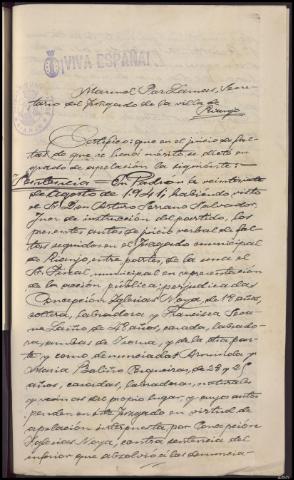 ¡VIVA ESPAÑA!
Manuel Paz Lamas, Secre-
tario del Juzgado de la villa de
Rianjo
Certifico: que en el juicio de fal-
tas de que se hará mérito se dictó en
grado de apelación la siguiente:
Sentencia En Padrón a veintisiete
de Agosto de 1946, habiendo visto
el Sr. Don Arturo Serrano Salvador,
Juez de instrucción del partido, los
presentes autos de juicio verbal de fal-
tas seguidos en el Juzgado municipal
de Rianjo, entre partes, de la una el
Sr. Fiscal municipal en representación
de la acción pública; perjudicadas
Concepción Iglesias Noya, de 19 años,
soltera, labradora y Francisca
de 48 años, casada, labrado-
ra, ambas de y de la otra par-
te y como denunciadas y
Maria Batiño de 28 y 25
años, casadas, labradoras, naturales
y vecinas del propio lugar, y cuyos autos
penden en este Juzgado en virtud de
apelación interpuesta por Concepción
Iglesias Noya, contra sentencia del
inferior que absolvió a las denuncia-